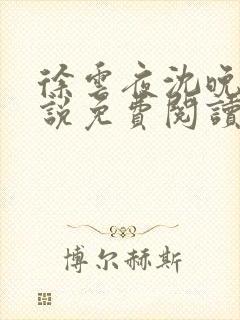 徐雲夜沈晚
說免費閱讀
博尔赫斯